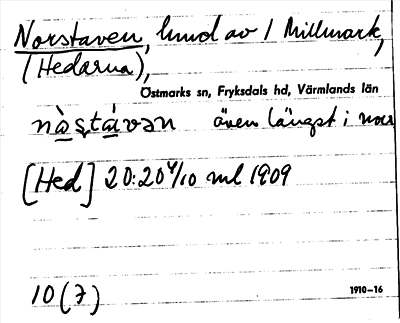 Norstaven, hmd av / Millmark,
(Hedarna),
Östmarks sn, Fryksdals hd, Värmlands län
nàṣtávən även längst i norr
[Hed] 20:20 4/10 ml 1909
10(7)
1910-16